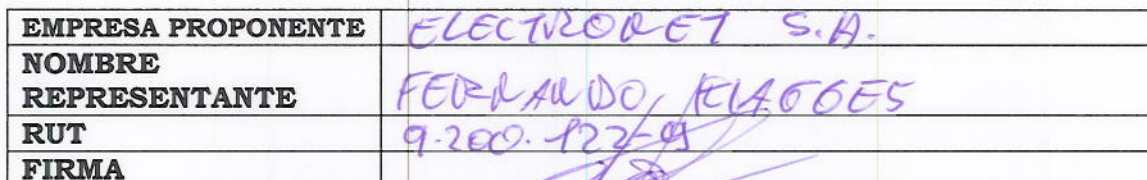 EMPRESA PROPONENTE ELECTRONET S.A.
NOMBRE
REPRESENTANTE FERNANDO KLAGGES
RUT 9.200.122-9
FIRMA